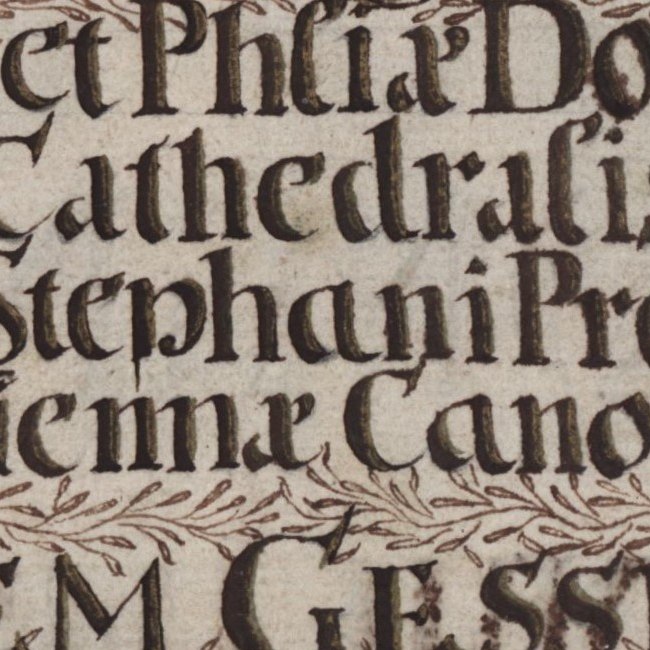 et Phliæ Do
Cathedralis
Stephani Pro
iennæ Cano
EM GESS